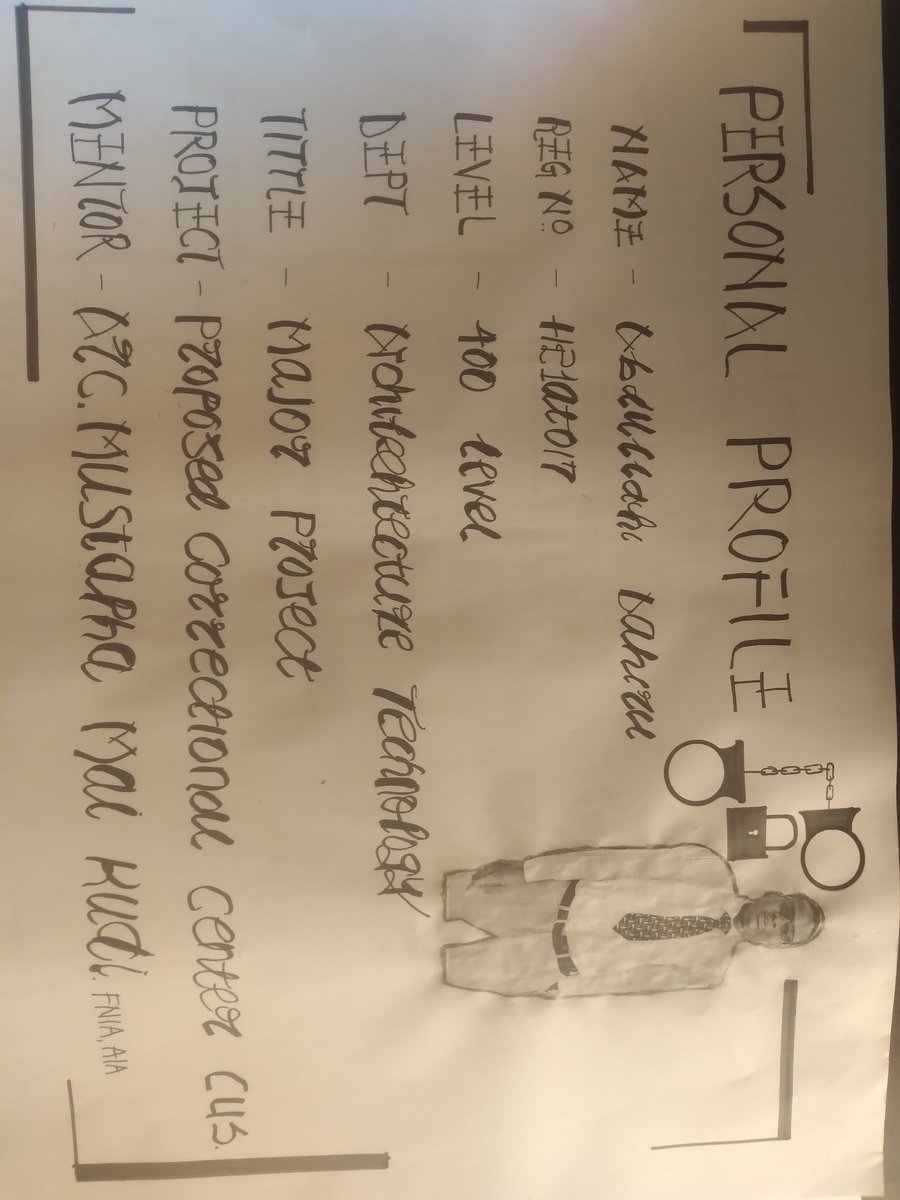 PERSONAL PROFILE
NAME - Abdullahi Bahrau
REG NO. -
LEVEL - 400 Level
DEPT - Architechtecture Technology
TITTLE - Major Project
PROJECT - Proposed Correctional Center
MENTOR - Arc. Mustapha Mai Kudi. FNIA, AIA